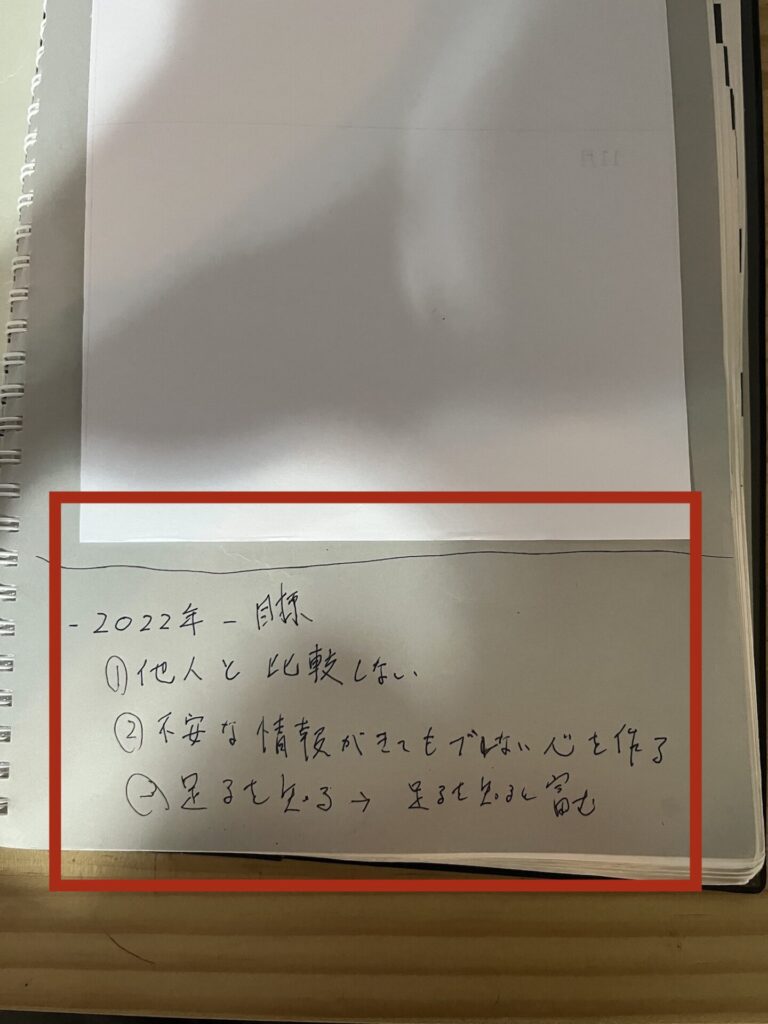 11月
- 2022年 - 目標
① 他人と比較しない
② 不安な情報がきてもブレない心を作る
③ 足るを知る → 足るを知ると富む